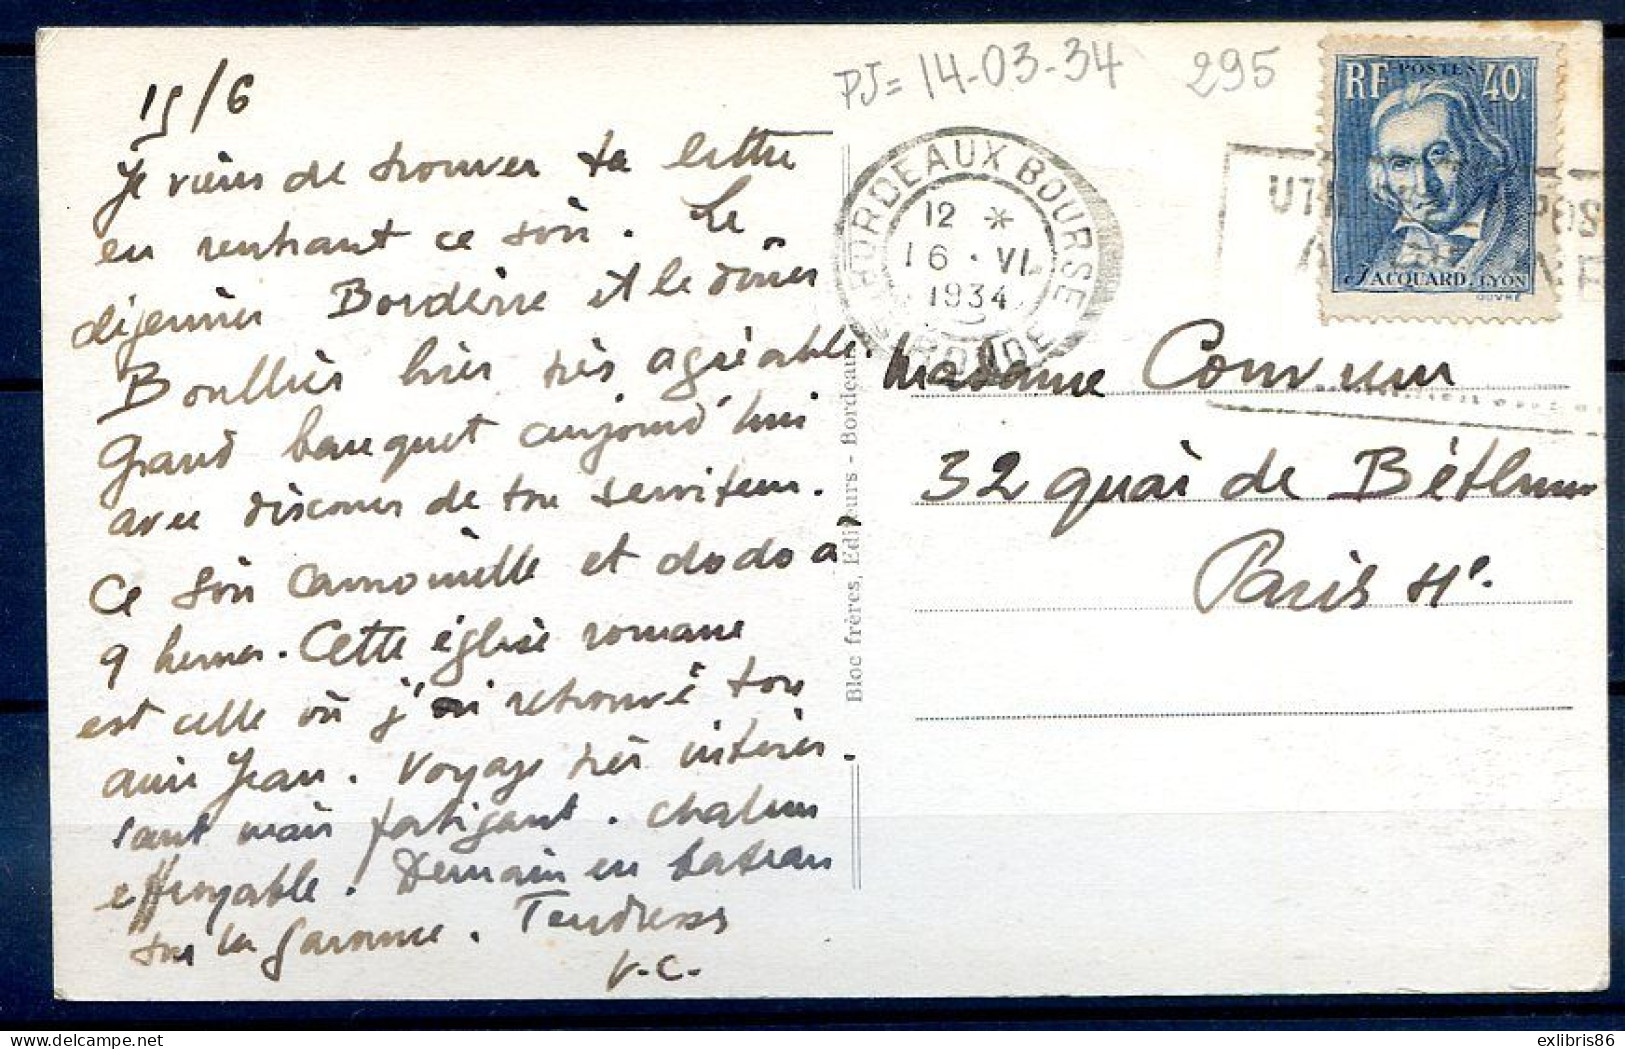 15/6
Je viens de trouver ta lettre
en rentrant ce soir. Le
déjeuner Borderie et le dîner
Boullier hier très agréable.
Grand banquet aujourd'hui
avec discours de ton serviteur.
Ce soir camomille et dodo à
9 heures. Cette église romane
est celle où j'ai retrouvé ton
ami Jean. Voyage très intéres
sant mais fatigant. Chaleur
effroyable. Demain en bateau
sur la Garonne. Tendresses
V.C.
Bloc frères, Editeurs - Bordeaux
PJ= 14-03-34 295
BORDEAUX BOURSE
12 *
16 · VI
1934
GIRONDE
RF POSTES 40
JACQUARD. LYON
OUVRÉ
Madame
32 quai de Béthune
Paris 4e.
exlibris86